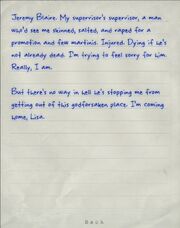 Jeremy Blaire. My supervisor's supervisor, a man
who'd see me skinned, salted, and raped for a
promotion and few martinis. Injured. Dying if he's
not already dead. I'm trying to feel sorry for him.
Really, I am.
But there's no way in hell he's stopping me from
getting out of this godforsaken place. I'm coming
home, Lisa.
Back